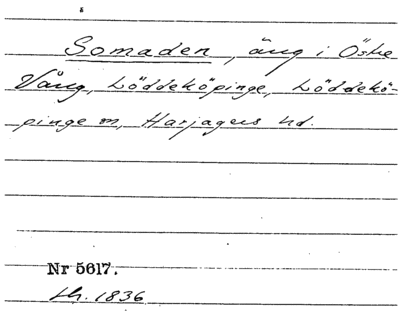 Somaden, äng i Östra
Vång, Löddeköpinge, Löddekö-
pinge sn, Harjagers hd.
Nr 5617.
1836